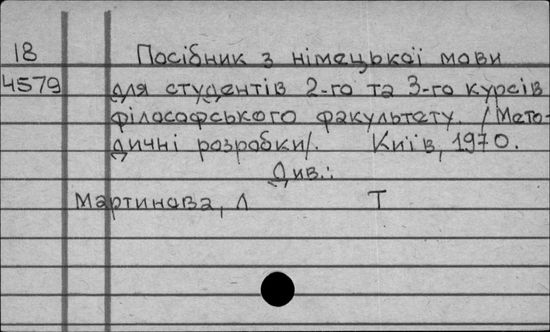 18 Посібник з німецької мови
4579 для студентів 2-го та 3-го курсів
філософського факультету. /Мето-
дичні розробки/. Київ, 1970.
Див.:
Мартинова, Л Т